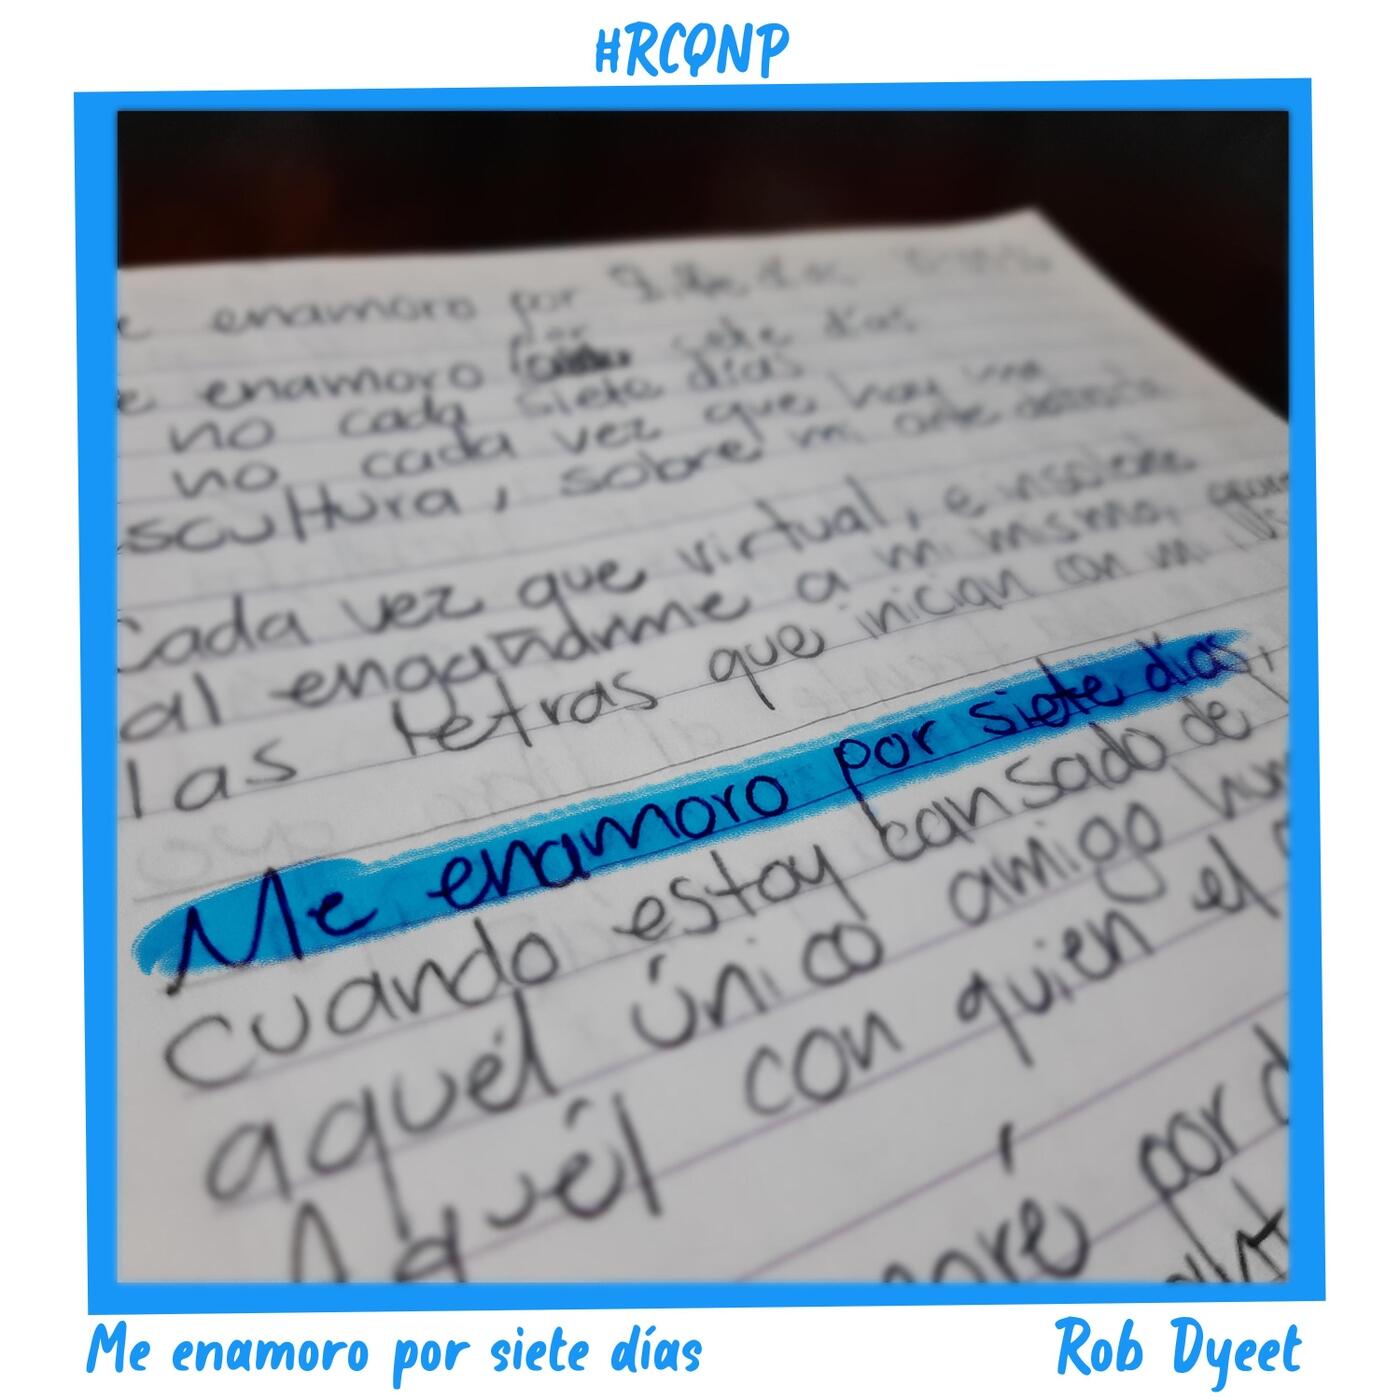 #RCQNP
e enamoro por
por
e enamoro siete días
no cada siete días
no cada vez que hay una
scultura, sobre mi ante
Cada vez que virtual, e insolente
al engañarme a mi mismo,
las letras que inician con mi
Me enamoro por siete días,
cuando estoy cansado de
aquél único amigo hum
Aquél con quien el
oré por d
Me enamoro por siete días
Rob Dyeet